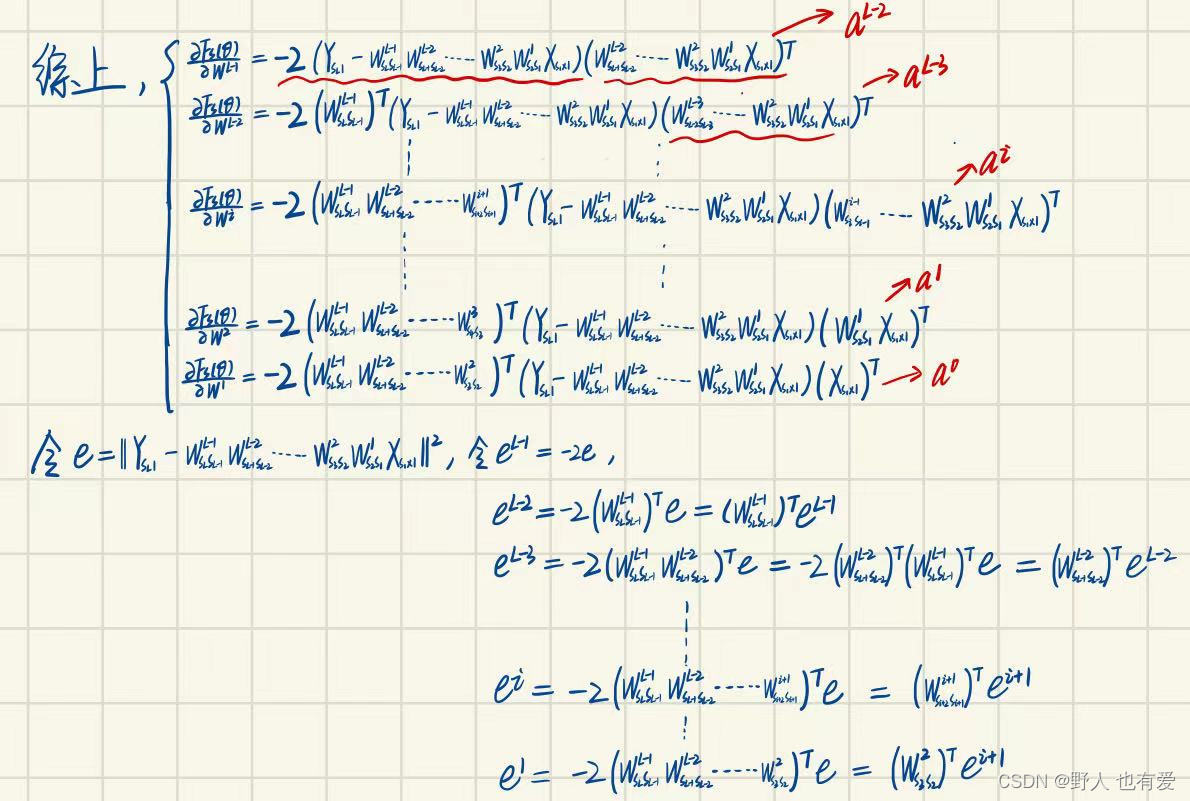 综上，
∂F₃(θ)/∂W^{L-1} = -2 (Y_{S_L1} - W^{L-1}_{S_LS_{L-1}} W^{L-2}_{S_{L-1}S_{L-2}} ······ W²_{S_3S_2} W¹_{S_2S_1} X_{S_1×1}) (W^{L-2}_{S_{L-1}S_{L-2}} ······ W²_{S_3S_2} W¹_{S_2S_1} X_{S_1×1})^T → a^{L-2}
∂F₃(θ)/∂W^{L-2} = -2 (W^{L-1}_{S_LS_{L-1}})^T (Y_{S_L1} - W^{L-1}_{S_LS_{L-1}} W^{L-2}_{S_{L-1}S_{L-2}} ······ W²_{S_3S_2} W¹_{S_2S_1} X_{S_1×1}) (W^{L-3}_{S_{L-2}S_{L-3}} ······ W²_{S_3S_2} W¹_{S_2S_1} X_{S_1×1})^T → a^{L-3}
∂F₃(θ)/∂W^i = -2 (W^{L-1}_{S_LS_{L-1}} W^{L-2}_{S_{L-1}S_{L-2}} ······ W^{i+1}_{S_{i+2}S_{i+1}})^T (Y_{S_L1} - W^{L-1}_{S_LS_{L-1}} W^{L-2}_{S_{L-1}S_{L-2}} ······ W²_{S_3S_2} W¹_{S_2S_1} X_{S_1×1}) (W^{i-1}_{S_iS_{i-1}} ······ W²_{S_3S_2} W¹_{S_2S_1} X_{S_1×1})^T → a^i
∂F₃(θ)/∂W² = -2 (W^{L-1}_{S_LS_{L-1}} W^{L-2}_{S_{L-1}S_{L-2}} ······ W³_{S_4S_3})^T (Y_{S_L1} - W^{L-1}_{S_LS_{L-1}} W^{L-2}_{S_{L-1}S_{L-2}} ······ W²_{S_3S_2} W¹_{S_2S_1} X_{S_1×1}) (W¹_{S_2S_1} X_{S_1×1})^T → a¹
∂F₃(θ)/∂W¹ = -2 (W^{L-1}_{S_LS_{L-1}} W^{L-2}_{S_{L-1}S_{L-2}} ······ W²_{S_3S_2})^T (Y_{S_L1} - W^{L-1}_{S_LS_{L-1}} W^{L-2}_{S_{L-1}S_{L-2}} ······ W²_{S_3S_2} W¹_{S_2S_1} X_{S_1×1}) (X_{S_1×1})^T → a⁰
令 e = ‖Y_{S_L1} - W^{L-1}_{S_LS_{L-1}} W^{L-2}_{S_{L-1}S_{L-2}} ······ W²_{S_3S_2} W¹_{S_2S_1} X_{S_1×1}‖², 令 e^{L-1} = -2e,
e^{L-2} = -2 (W^{L-1}_{S_LS_{L-1}})^T e = (W^{L-1}_{S_LS_{L-1}})^T e^{L-1}
e^{L-3} = -2 (W^{L-1}_{S_LS_{L-1}} W^{L-2}_{S_{L-1}S_{L-2}})^T e = -2 (W^{L-2}_{S_{L-1}S_{L-2}})^T (W^{L-1}_{S_LS_{L-1}})^T e = (W^{L-2}_{S_{L-1}S_{L-2}})^T e^{L-2}
e^i = -2 (W^{L-1}_{S_LS_{L-1}} W^{L-2}_{S_{L-1}S_{L-2}} ······ W^{i+1}_{S_{i+2}S_{i+1}})^T e = (W^{i+1}_{S_{i+2}S_{i+1}})^T e^{i+1}
e¹ = -2 (W^{L-1}_{S_LS_{L-1}} W^{L-2}_{S_{L-1}S_{L-2}} ······ W²_{S_3S_2})^T e = (W²_{S_3S_2})^T e^{i+1}
CSDN @野人 也有爱